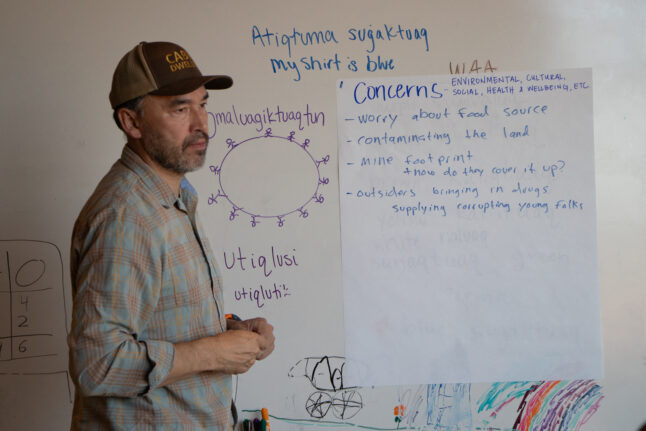 Atiqtuma suġaktuaq
my shirt is blue
WAA
Concerns - ENVIRONMENTAL, CULTURAL,
SOCIAL, HEALTH & WELLBEING, ETC
- worry about food source
- contaminating the land
- mine footprint
+ how do they cover it up?
- outsiders bringing in drugs
supplying corrupting young folks
DWELLER
Utiqlusi
4
2
6